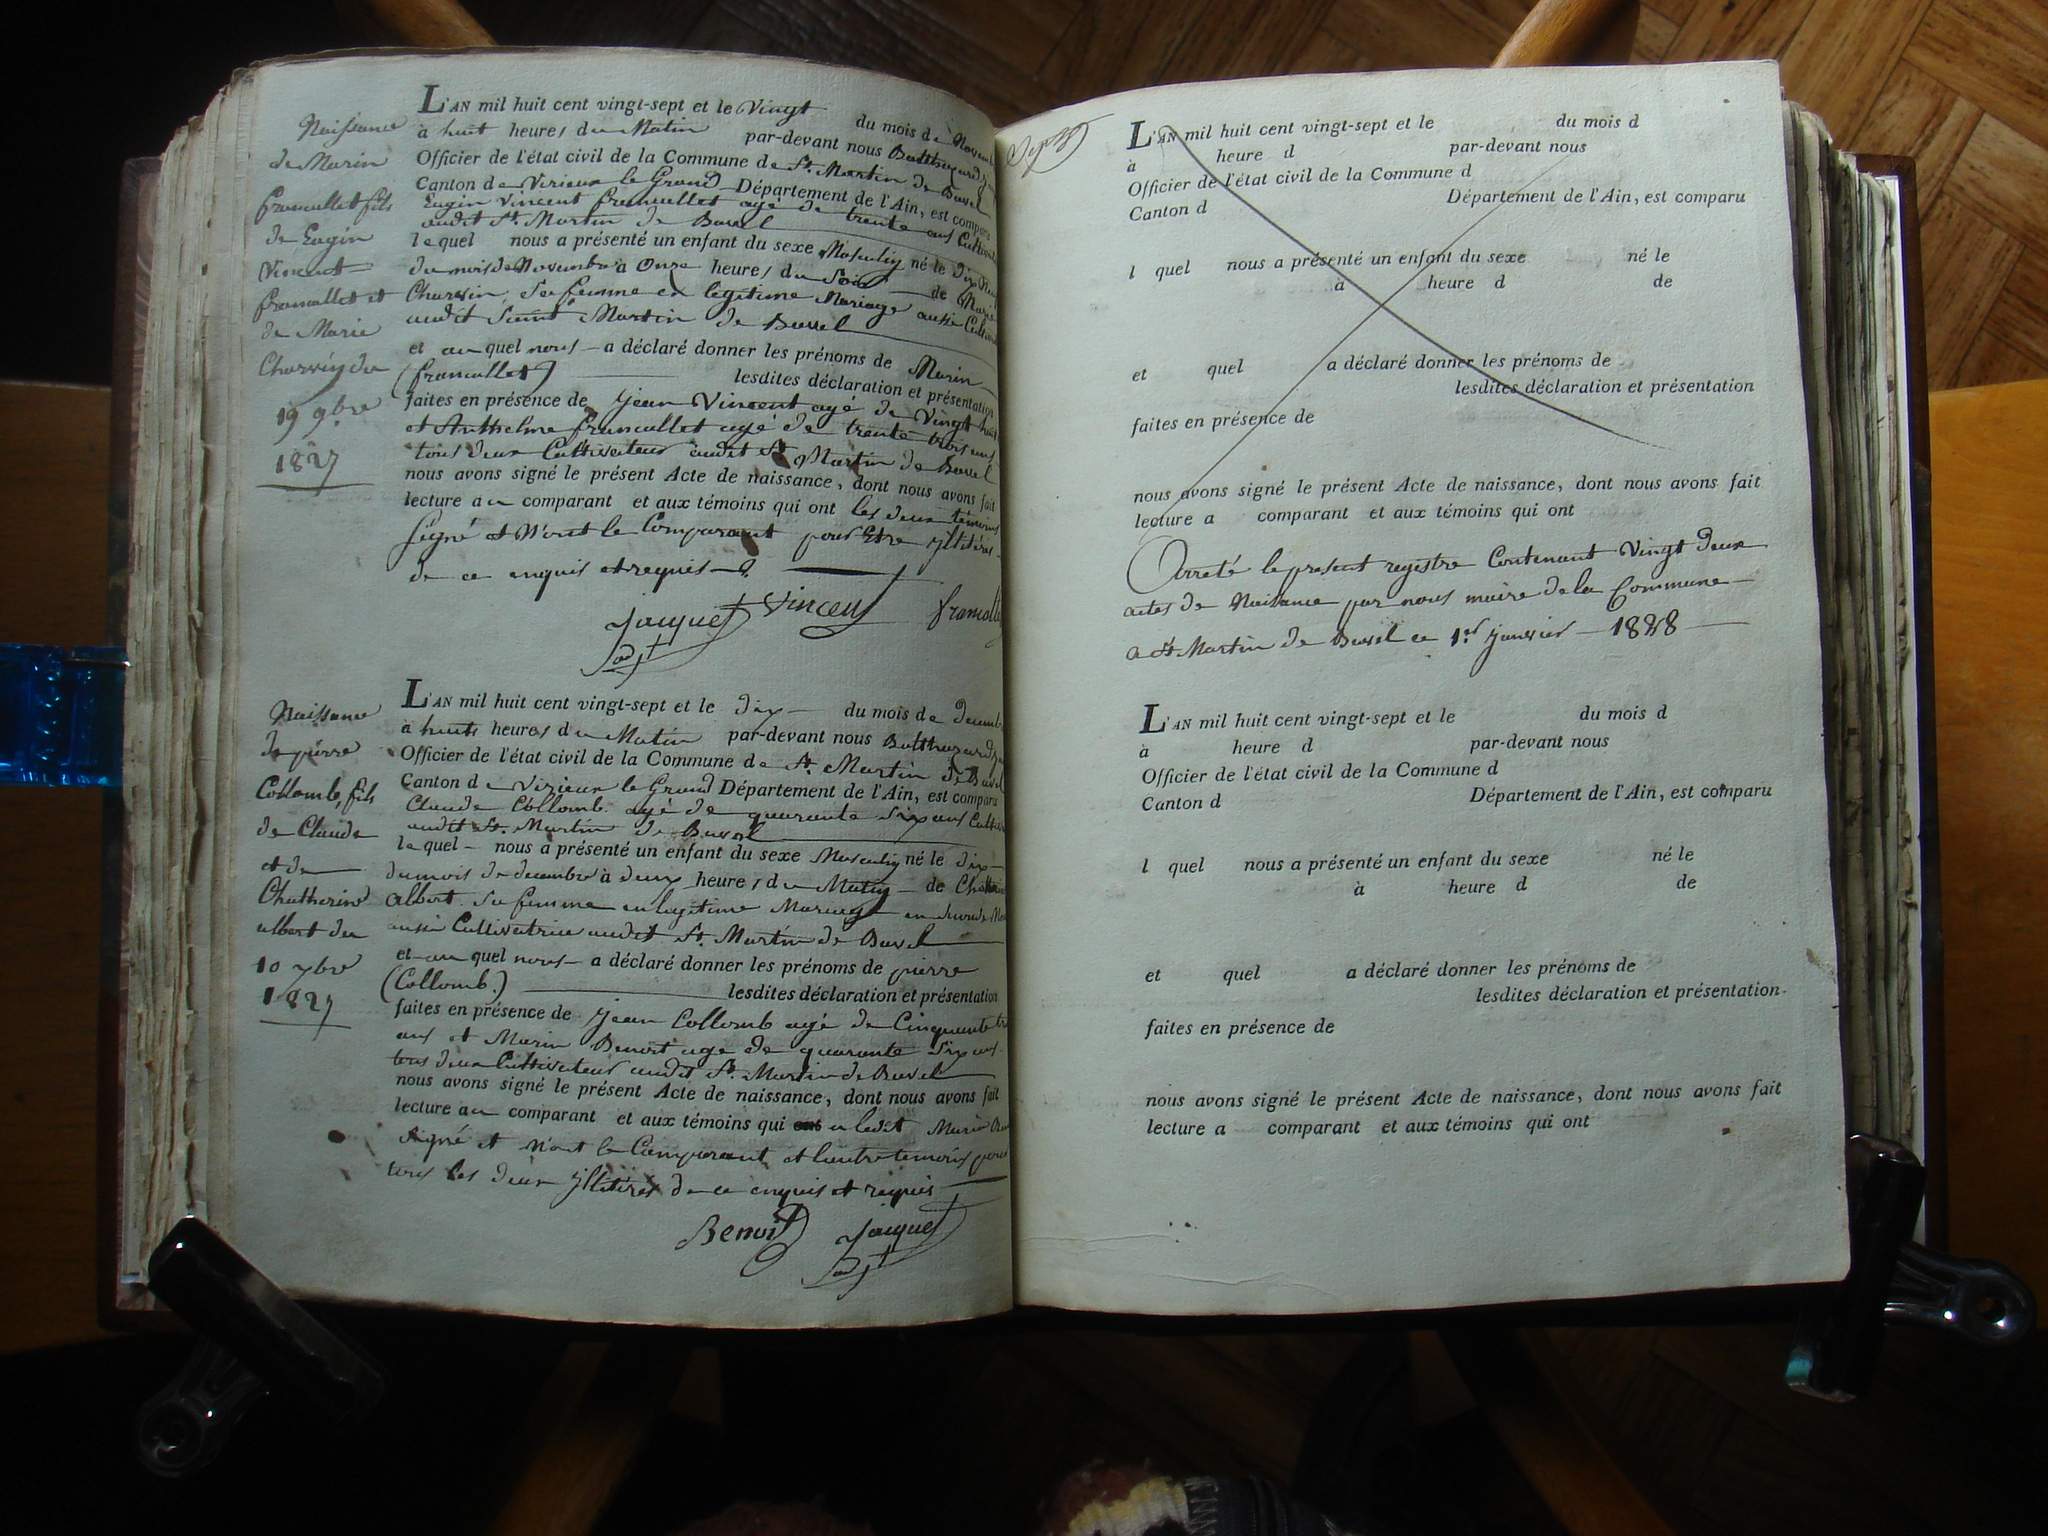 Naissance
de Marin
francallet fils
de Eugin
Vincent
francallet et
de Marie
Charvin du
19 9bre
1827
L'AN mil huit cent vingt-sept et le Vingt du mois de Novemb
à huit heures du Matin par-devant nous Balthazard
Officier de l'état civil de la Commune de St. Martin de Bavel
Canton de Virieux le Grand Département de l'Ain, est comparu
Eugin Vincent francallet agé de trente ans Cultivat
audit St. Martin de Bavel
lequel nous a présenté un enfant du sexe Masculin né le Dix Neuf
du mois de Novembre à Onze heures du Soir de Marie
Charvin sa femme en légitime Mariage aussi Cultiv
audit Saint Martin de Bavel
et au quel nous a déclaré donner les prénoms de Marin
(francallet) lesdites déclaration et présentation
faites en présence de Jean Vincent agé de Vingt huit
et Anthelme francallet agé de trente trois ans
tous deux Cultivateur audit St Martin de Bavel
nous avons signé le présent Acte de naissance, dont nous avons fait
lecture au comparant et aux témoins qui ont les deux témoins
Signé et N'ont le Comparant pour Etre yllitéré
de ce enquis et requis
Jacquet Vincent francalle
adjt
Naissance
de pierre
Collomb, fils
de Claude
et de
Chatherine
albert du
10 xbre
1827
L'AN mil huit cent vingt-sept et le dix du mois de Decemb
à huits heures du Matin par-devant nous Balthazard
Officier de l'état civil de la Commune de St. Martin de Bavel
Canton de Virieux le Grand Département de l'Ain, est comparu
Claude Collomb agé de quarante Six ans Cultiv
audit St. Martin de Bavel
lequel nous a présenté un enfant du sexe Masculin né le dix
du mois de decembre à deux heures du Matin de Chatherine
Albert sa femme en legitime Mariage en Seconde
aussi Cultivatrice audit St. Martin de Bavel
et au quel nous a déclaré donner les prénoms de pierre
(Collomb.) lesdites déclaration et présentation
faites en présence de Jean Collomb agé de Cinquante
ans et Marin Benoit age de quarante Six ans
tous deux Cultivateur audit St. Martin de Bavel
nous avons signé le présent Acte de naissance, dont nous avons fait
lecture au comparant et aux témoins qui ont a ledit Marin
Signé et N'ont le Comparant et l'autre temoins pour
tous les deux yllitéres de ce enquis et requis
Benoit Jacquet
adjt
L'AN mil huit cent vingt-sept et le du mois d
à heure d par-devant nous
Officier de l'état civil de la Commune d
Canton d Département de l'Ain, est comparu
l quel nous a présenté un enfant du sexe né le
à heure d de
et quel a déclaré donner les prénoms de
lesdites déclaration et présentation
faites en présence de
nous avons signé le présent Acte de naissance, dont nous avons fait
lecture a comparant et aux témoins qui ont
Arreté le present registre Contenant Vingt deux
actes de Naissance par nous maire de la Commune
a St. Martin de Bavel ce 1er janvier 1828
L'AN mil huit cent vingt-sept et le du mois d
à heure d par-devant nous
Officier de l'état civil de la Commune d
Canton d Département de l'Ain, est comparu
l quel nous a présenté un enfant du sexe né le
à heure d de
et quel a déclaré donner les prénoms de
lesdites déclaration et présentation
faites en présence de
nous avons signé le présent Acte de naissance, dont nous avons fait
lecture a comparant et aux témoins qui ont